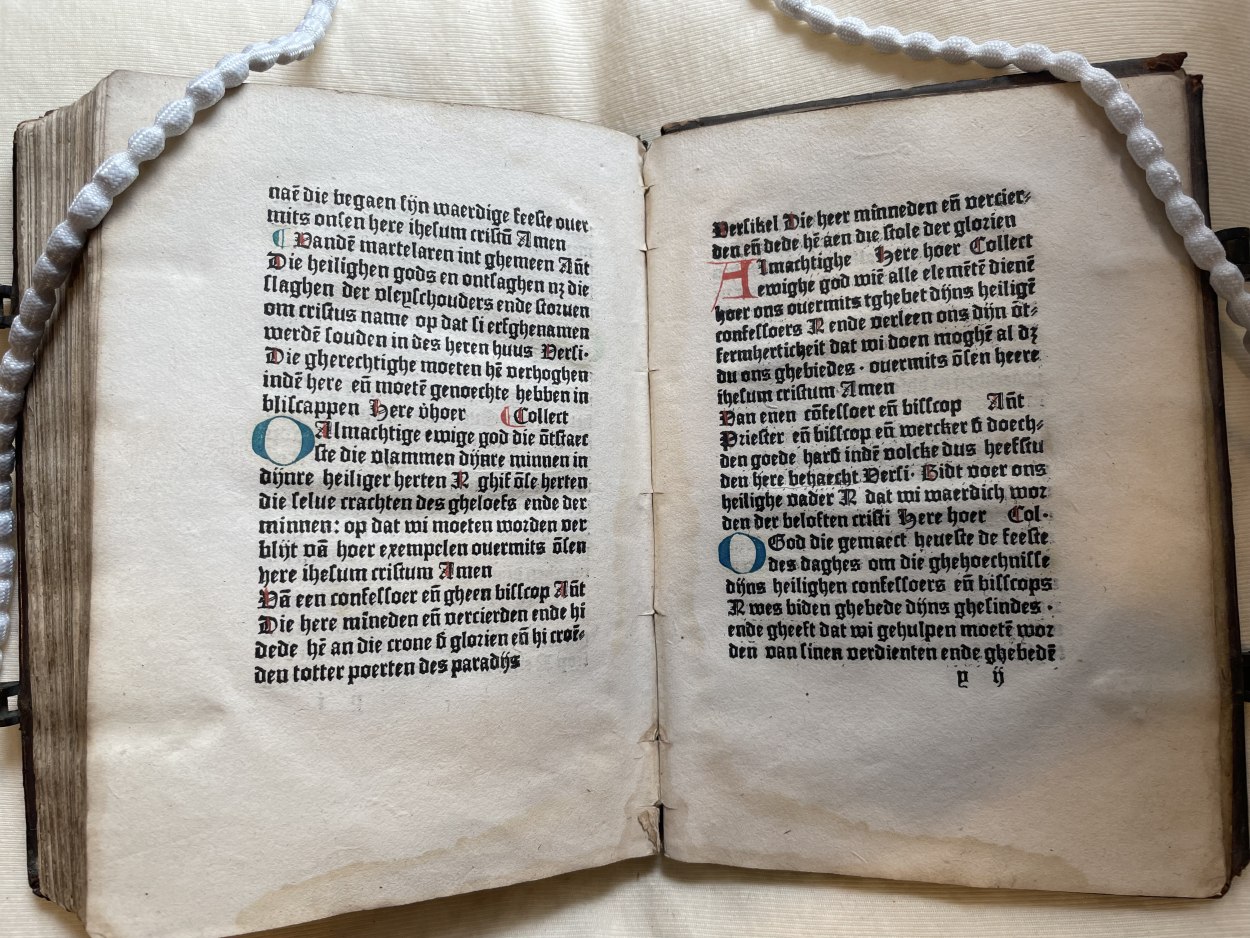 naē die begaen sijn waerdige feeste ouer
mits onsen here ihesum cristū Amen
¶ Vandē martelaren int ghemeen Añt
Die heilighen gods en ontsaghen nꝫ die
slaghen der vleyschouders ende storuen
om cristus name op dat si erfghenamen
werdē souden in des heren huus Versi·
Die gherechtighe moeten hē verhoghen
indē here eñ moetē genoechte hebben in
bliscappen Here v̇hoer ¶ Collect
O Almachtige ewige god die ōtstaec
ste die vlammen dijnre minnen in
dijnre heiliger herten N ghif ōse herten
die selue crachten des gheloefs ende der
minnen: op dat wi moeten worden ver
blijt vā hoer exempelen ouermits ōsen
here ihesum cristum Amen
Vā een confessoer eñ gheen bisscop Añt
Die here mīneden eñ vercierden ende hi
dede hē an die crone ẟ glorien eñ hi croē⸗
den totter poerten des paradijs
Versikel Die heer mīneden eñ vercier⸗
den eñ dede hē aen die stole der glorien
Almachtighe Here hoer Collect
ewighe god wiē alle elemētē dienē
hoer ons ouermits tghebet dijns heiligē
confessoers N ende verleen ons dijn ōt⸗
fermherticheit dat wi doen moghē al dꝫ
du ons ghebiedes · ouermits ōsen heere
ihesum cristum Amen
Van enen cōfessoer eñ bisscop Añt
Priester eñ bisscop eñ wercker ẟ doech⸗
den goede harẟ indē volcke dus heefstu
den here behaecht Versi· Bidt voer ons
heilighe vader N dat wi waerdich wor
den der beloften cristi Here hoer Col·
O God die gemaect heueste de feeste
des daghes om die ghehoechnisse
dijns heilighen confessoers eñ bisscops
N wes biden ghebede dijns ghesindes ·
ende gheeft dat wi gehulpen moetē wor
den van sinen verdienten ende ghebedē
y ij